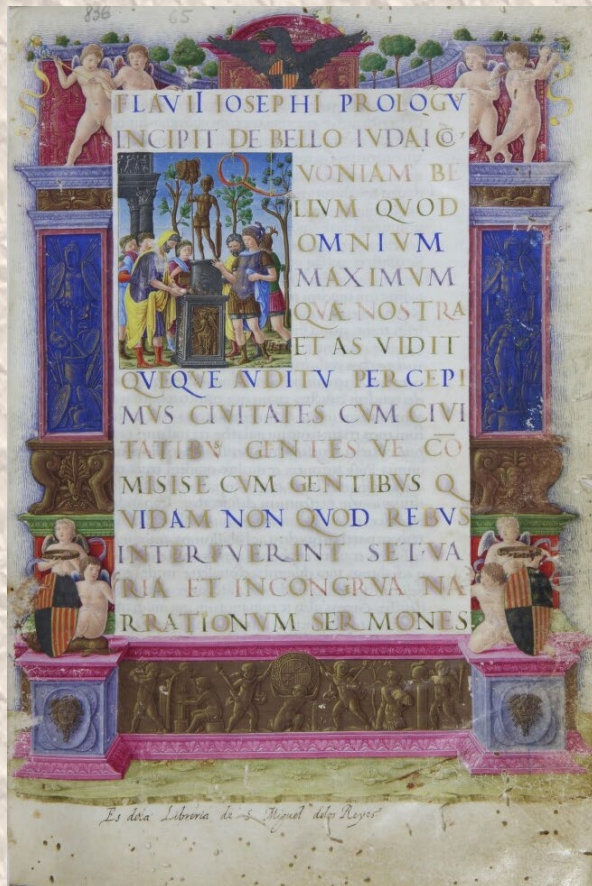 836 65
FLAVII IOSEPHI PROLOGV
INCIPIT DE BELLO IVDAICO
QVONIAM BE
LLVM QVOD
OMNIVM
MAXIMVM
QVÆ NOSTRA
ET AS VIDIT
QVEQVE AVDITV PERCEPI
MVS CIVITATES CVM CIVI
TATIBV GENTES VE CŌ
MISISE CVM GENTIBVS Q
VIDAM NON QVOD REBVS
INTERFVERINT SET·VA
RIA ET INCONGRVA NA
RRATIONVM SERMONES
Es dela Libreria de S. Miguel delos Reyes